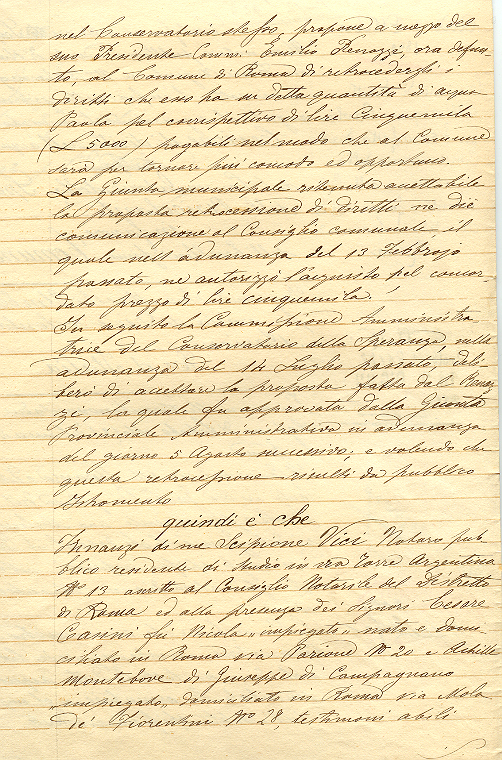 nel Conservatorio stesso, propone a mezzo del
suo Presidente Comm: Emilio Renazzi, ora defun-
to, al Comune di Roma di retrocedergli i
diritti che esso ha su detta quantità di acqua
Paola pel corrispettivo di lire Cinquemila
(L 5000) pagabili nel modo che al Comune
sarà per tornare più comodo ed opportuno.
La Giunta municipale ritenuta accettabile
la proposta retrocessione di diritti ne diè
comunicazione al Consiglio comunale il
quale nell'adunanza del 13 Febbrajo
passato, ne autorizzò l'acquisto pel concor-
dato prezzo di lire cinquemila.
In seguito la Commissione Amministra
trice del Conservatorio della Speranza, nella
adunanza del 14 Luglio passato, deli-
berò di accettare la proposta fatta dal Renaz-
zi, la quale fu approvata dalla Giunta
Provinciale Amministrativa in adunanza
del giorno 5 Agosto successivo; e volendo che
questa retrocessione risulti da pubblico
Istromento
quindi è che
Innanzi di me Scipione Vici Notaro pub-
blico residente di studio in via Torre Argentina
No 13 ascritto al Consiglio Notarile del Distretto
di Roma ed alla presenza dei Signori Cesare
fu Nicola, impiegato, nato e domi-
ciliato in Roma via Parione No 20 e Achille
Montebove di Giuseppe di Campagnano
impiegato, domiciliato in Roma via Mola
de' Fiorentini No 28, testimoni abili